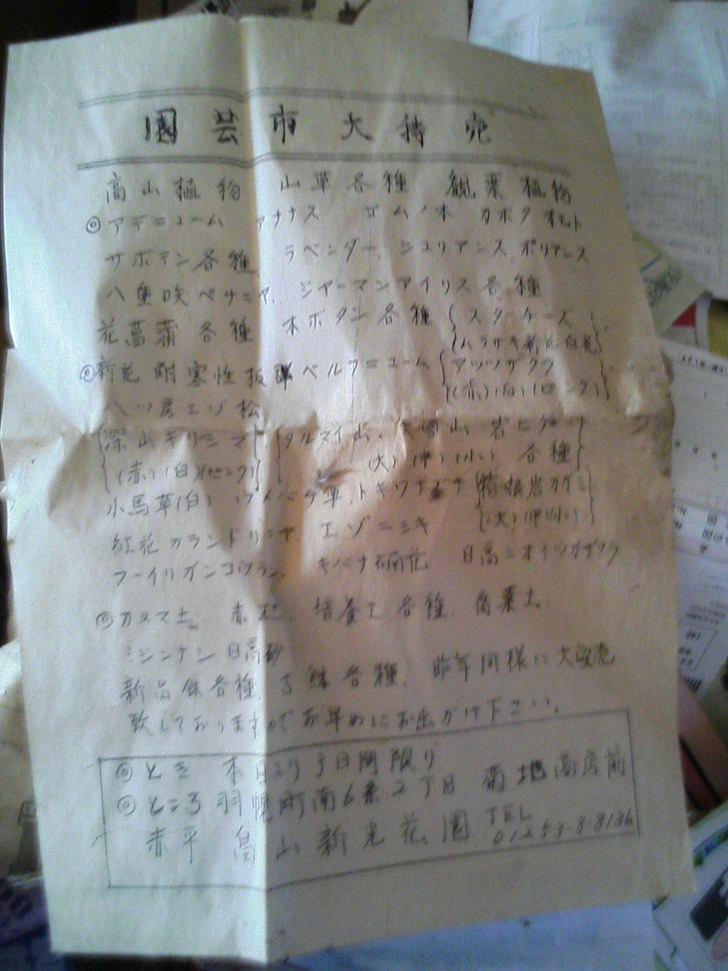 園芸市大特売
高山植物 山草各種 観葉植物
◎アデニューム アナナス ゴムノ木 カポク
サボテン各種 ラベンダー、ジュリアンス、ポリアンス
八重咲ペチニア、ジャーマンアイリス各種
花菖蒲各種 木ボタン各種 {スターチーズ
(ムラサキ新花白花)
◎新花耐寒性 ベルフニューム {アッツザクラ
(赤)(白)(ピンク)}
八ツ房エゾ松
{深山キリシマ} {タルマイ山、大雪山 岩ヒゲ
{(赤)(白)(ピンク)} (大)(中)(小) 各種}
小馬草(白) ウメバチ草、トキワナズナ {箱根岩カガミ
{(大)(中)(小)}
紅花カランドリニヤ エゾミソハギ
フーイリガンコウラン、 キバナ石南花 日高
◎カヌマ土 赤土、培養土各種、腐葉土、
ミジンナシ 日高砂
新品鉢各種 古鉢各種、昨年同様に大売
致しておりますのでお早めにお出かけ下さい。
◎とき 本日より3日間限り
◎ところ 羽幌町南6条2丁目 菊地商店前
赤平 畠山新光花園 TEL
01253-3-8136